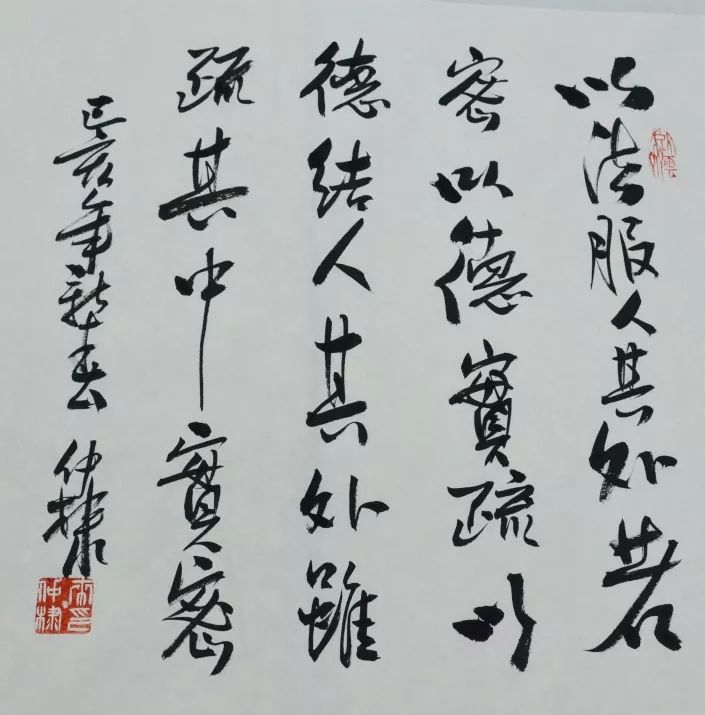 以法服人其外若
密以德實疏以
德結人其外雖
疏其中實密
己亥年新春 仲棣